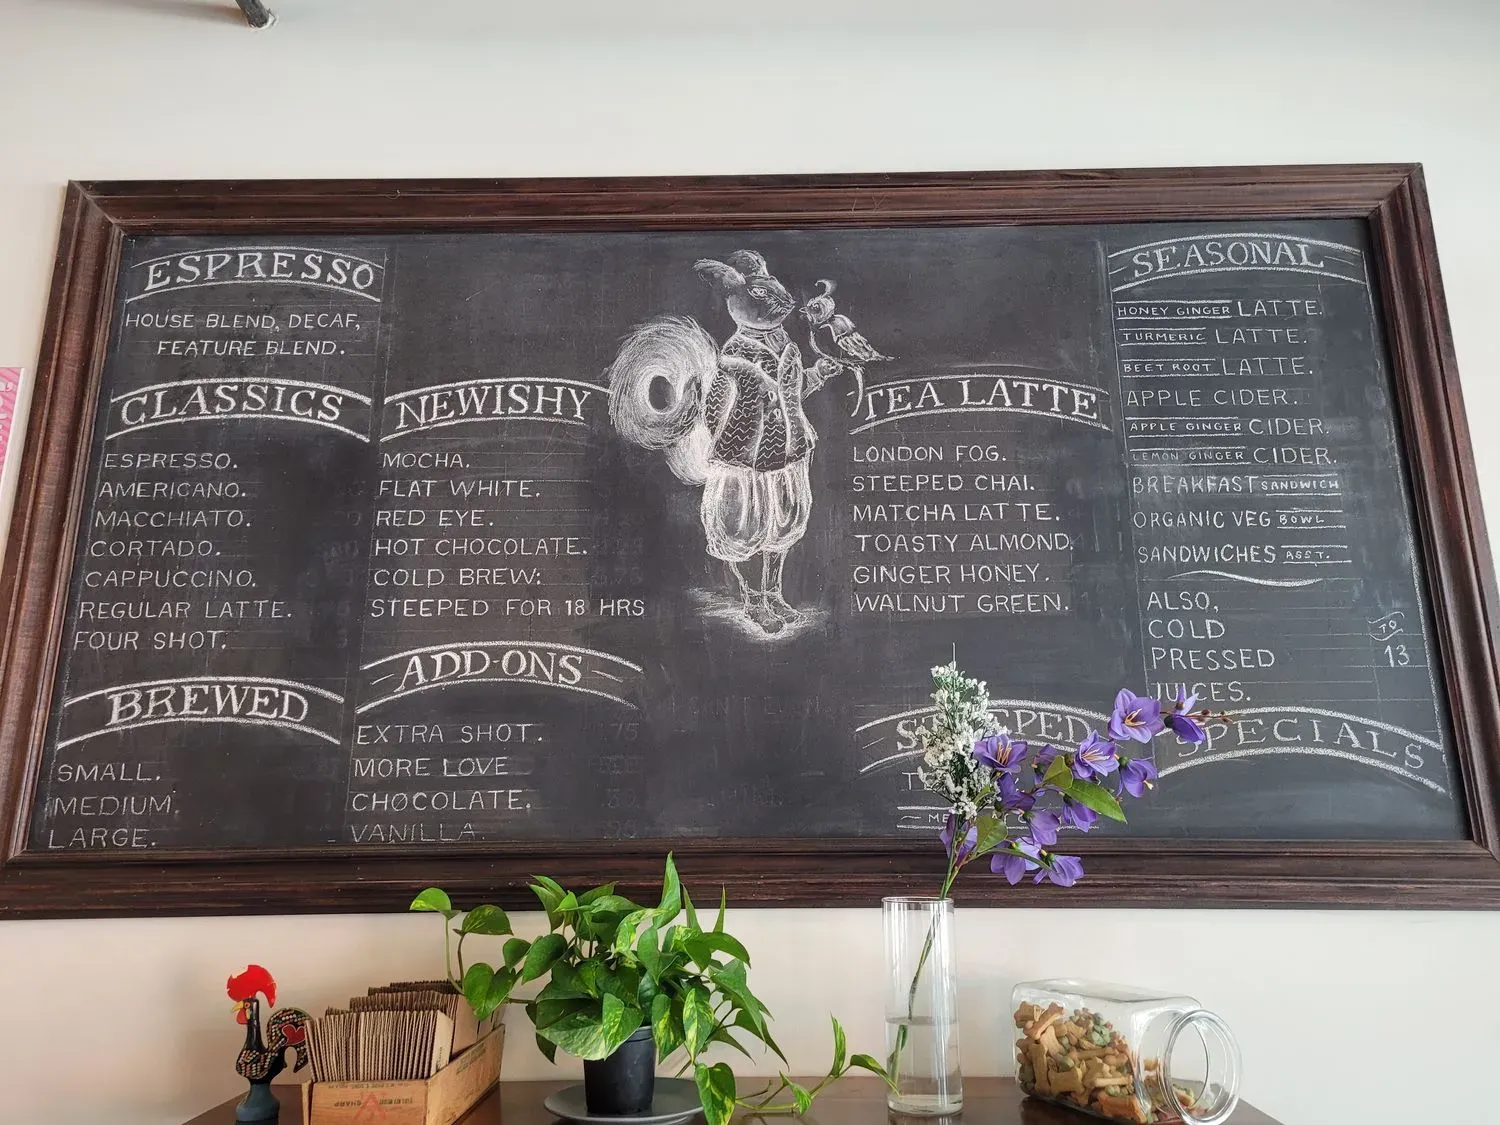 ESPRESSO
HOUSE BLEND, DECAF,
FEATURE BLEND.
CLASSICS
ESPRESSO.
AMERICANO.
MACCHIATO.
CORTADO.
CAPPUCCINO.
REGULAR LATTE.
FOUR SHOT.
BREWED
SMALL.
MEDIUM.
LARGE.
NEWISHY
MOCHA.
FLAT WHITE.
RED EYE.
HOT CHOCOLATE.
COLD BREW:
STEEPED FOR 18 HRS
ADD-ONS
EXTRA SHOT.
MORE LOVE
CHOCOLATE.
VANILLA.
TEA LATTE
LONDON FOG.
STEEPED CHAI.
MATCHA LATTE.
TOASTY ALMOND.
GINGER HONEY.
WALNUT GREEN.
SEASONAL
HONEY GINGER LATTE.
TURMERIC LATTE.
BEET ROOT LATTE.
APPLE CIDER.
APPLE GINGER CIDER.
LEMON GINGER CIDER.
BREAKFAST SANDWICH
ORGANIC VEG BOWL
SANDWICHES ASST.
ALSO,
COLD
PRESSED
JUICES.
TO
13
SPECIALS